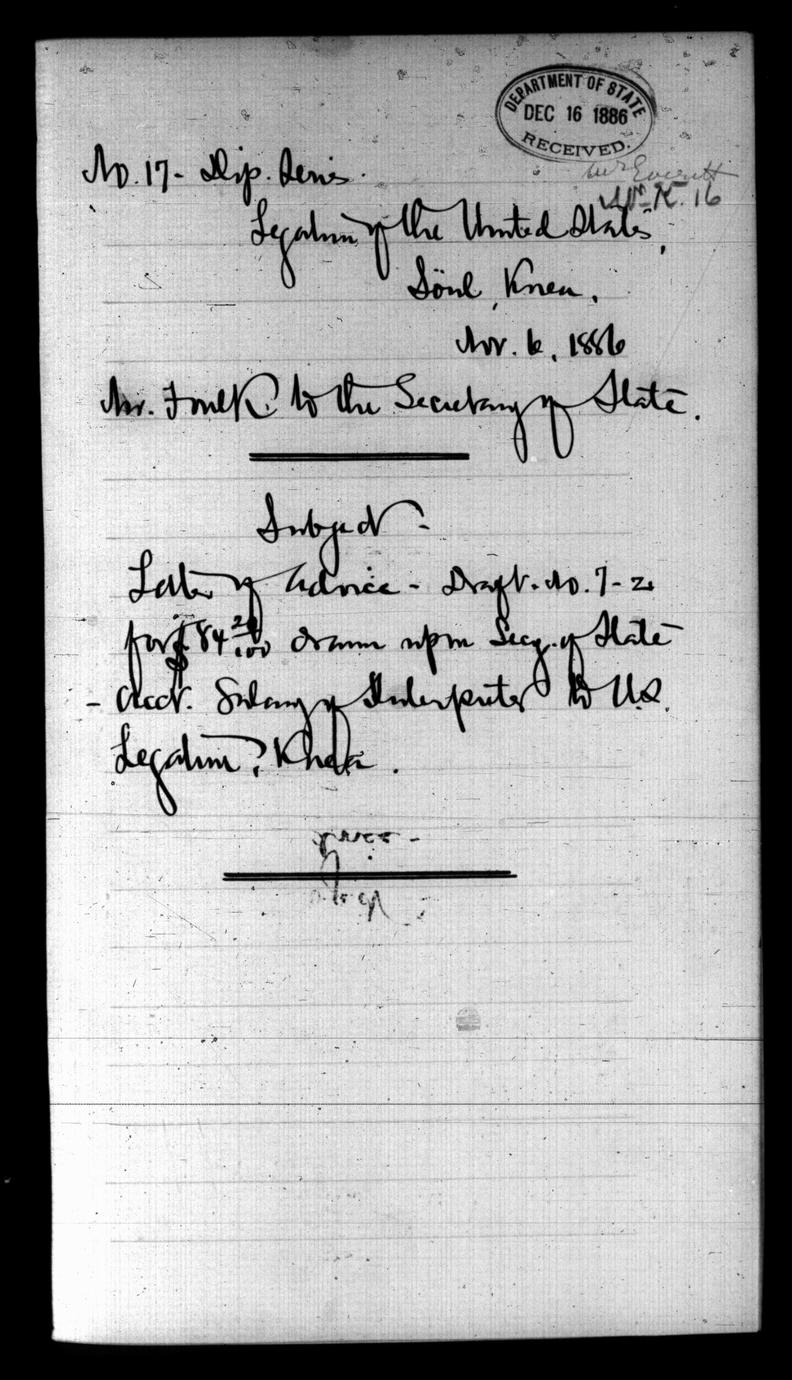 DEPARTMENT OF STATE
DEC 16 1886
RECEIVED.
No. 17 - Dip. Series.
Mr Everett
Legation of the United States,
Söul, Korea.
Nov. 6, 1886
Mr. Foulk to the Secretary of State.
Subject -
Letter of Advice - Draft. No. 7-2
for $84 20/100 drawn upon Secy. of State
- Acct. Salary of Interpreter to U.S.
Legation, Korea.